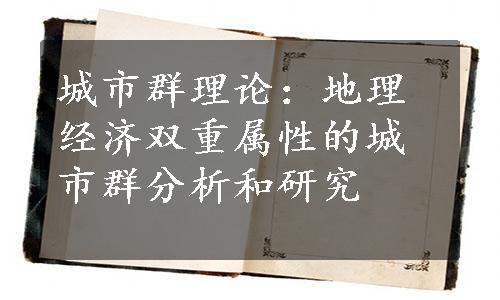 城市群理论：地理
经济双重属性的城
市群分析和研究